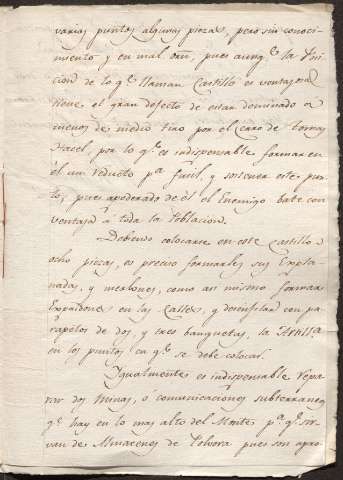 varios puntos algunas piezas, pero sin conoci-
miento y en mal orn, pues aunqe la Po
cicion de lo qe llaman Castillo es ventajosa
tiene el gran defecto de estar dominado a
menos de medio tiro por el Cerro de
por lo qe es indispensable formar en
el un reducto pa fusil, y sostener este pun-
to, pues apoderado de él el Enemigo bate con
ventaja a toda la Poblacion.
Debiendo colocarse en este Castillo
ocho piezas, es preciso formarles sus Expla-
nadas, y merlones, como asi mismo formar
Espaldones en las Calles, y desenfilar con pa-
rapetos de dos, y tres banquetas, la Artilla
en los puntos en qe se debe colocar.
Igualmente es indispensable repa-
rar dos Minas, o comunicaciones subterraneas
qe hay en lo mas alto del Monte pa qe sir-
van de Almacenes de Polvora pues son apro